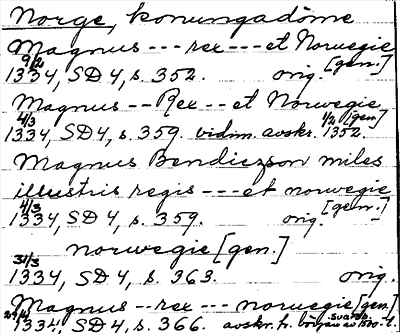 Norge, konungadöme
Magnus --- rex --- et Norwegie
9/2 [gen.]
1334, SD 4, s. 352. orig.
Magnus -- Rex -- et Norwegie
4/3 1/2 [gen]
1334, SD 4, s. 359. vidim. avskr. 1352.
Magnus Bendiczson miles
illustris regis --- et norwegie
4/3 [gen.]
1334, SD 4, s. 359. orig.
norwegie [gen.]
31/3
1334, SD 4, s. 363. orig.
Magnus -- rex --- norwegie [gen.]
1334, SD 4, s. 366. avskr. fr. början av 1500-t.